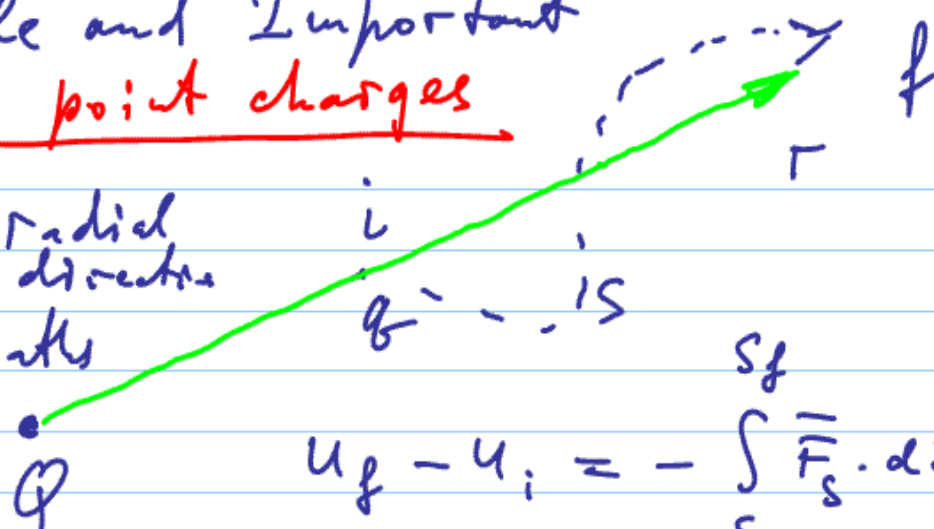 le and Important
point charges
f
r
radial
i
directio
q
s
aths
Q
Sf
Uf - Ui = - ∫ F̅s · d
s